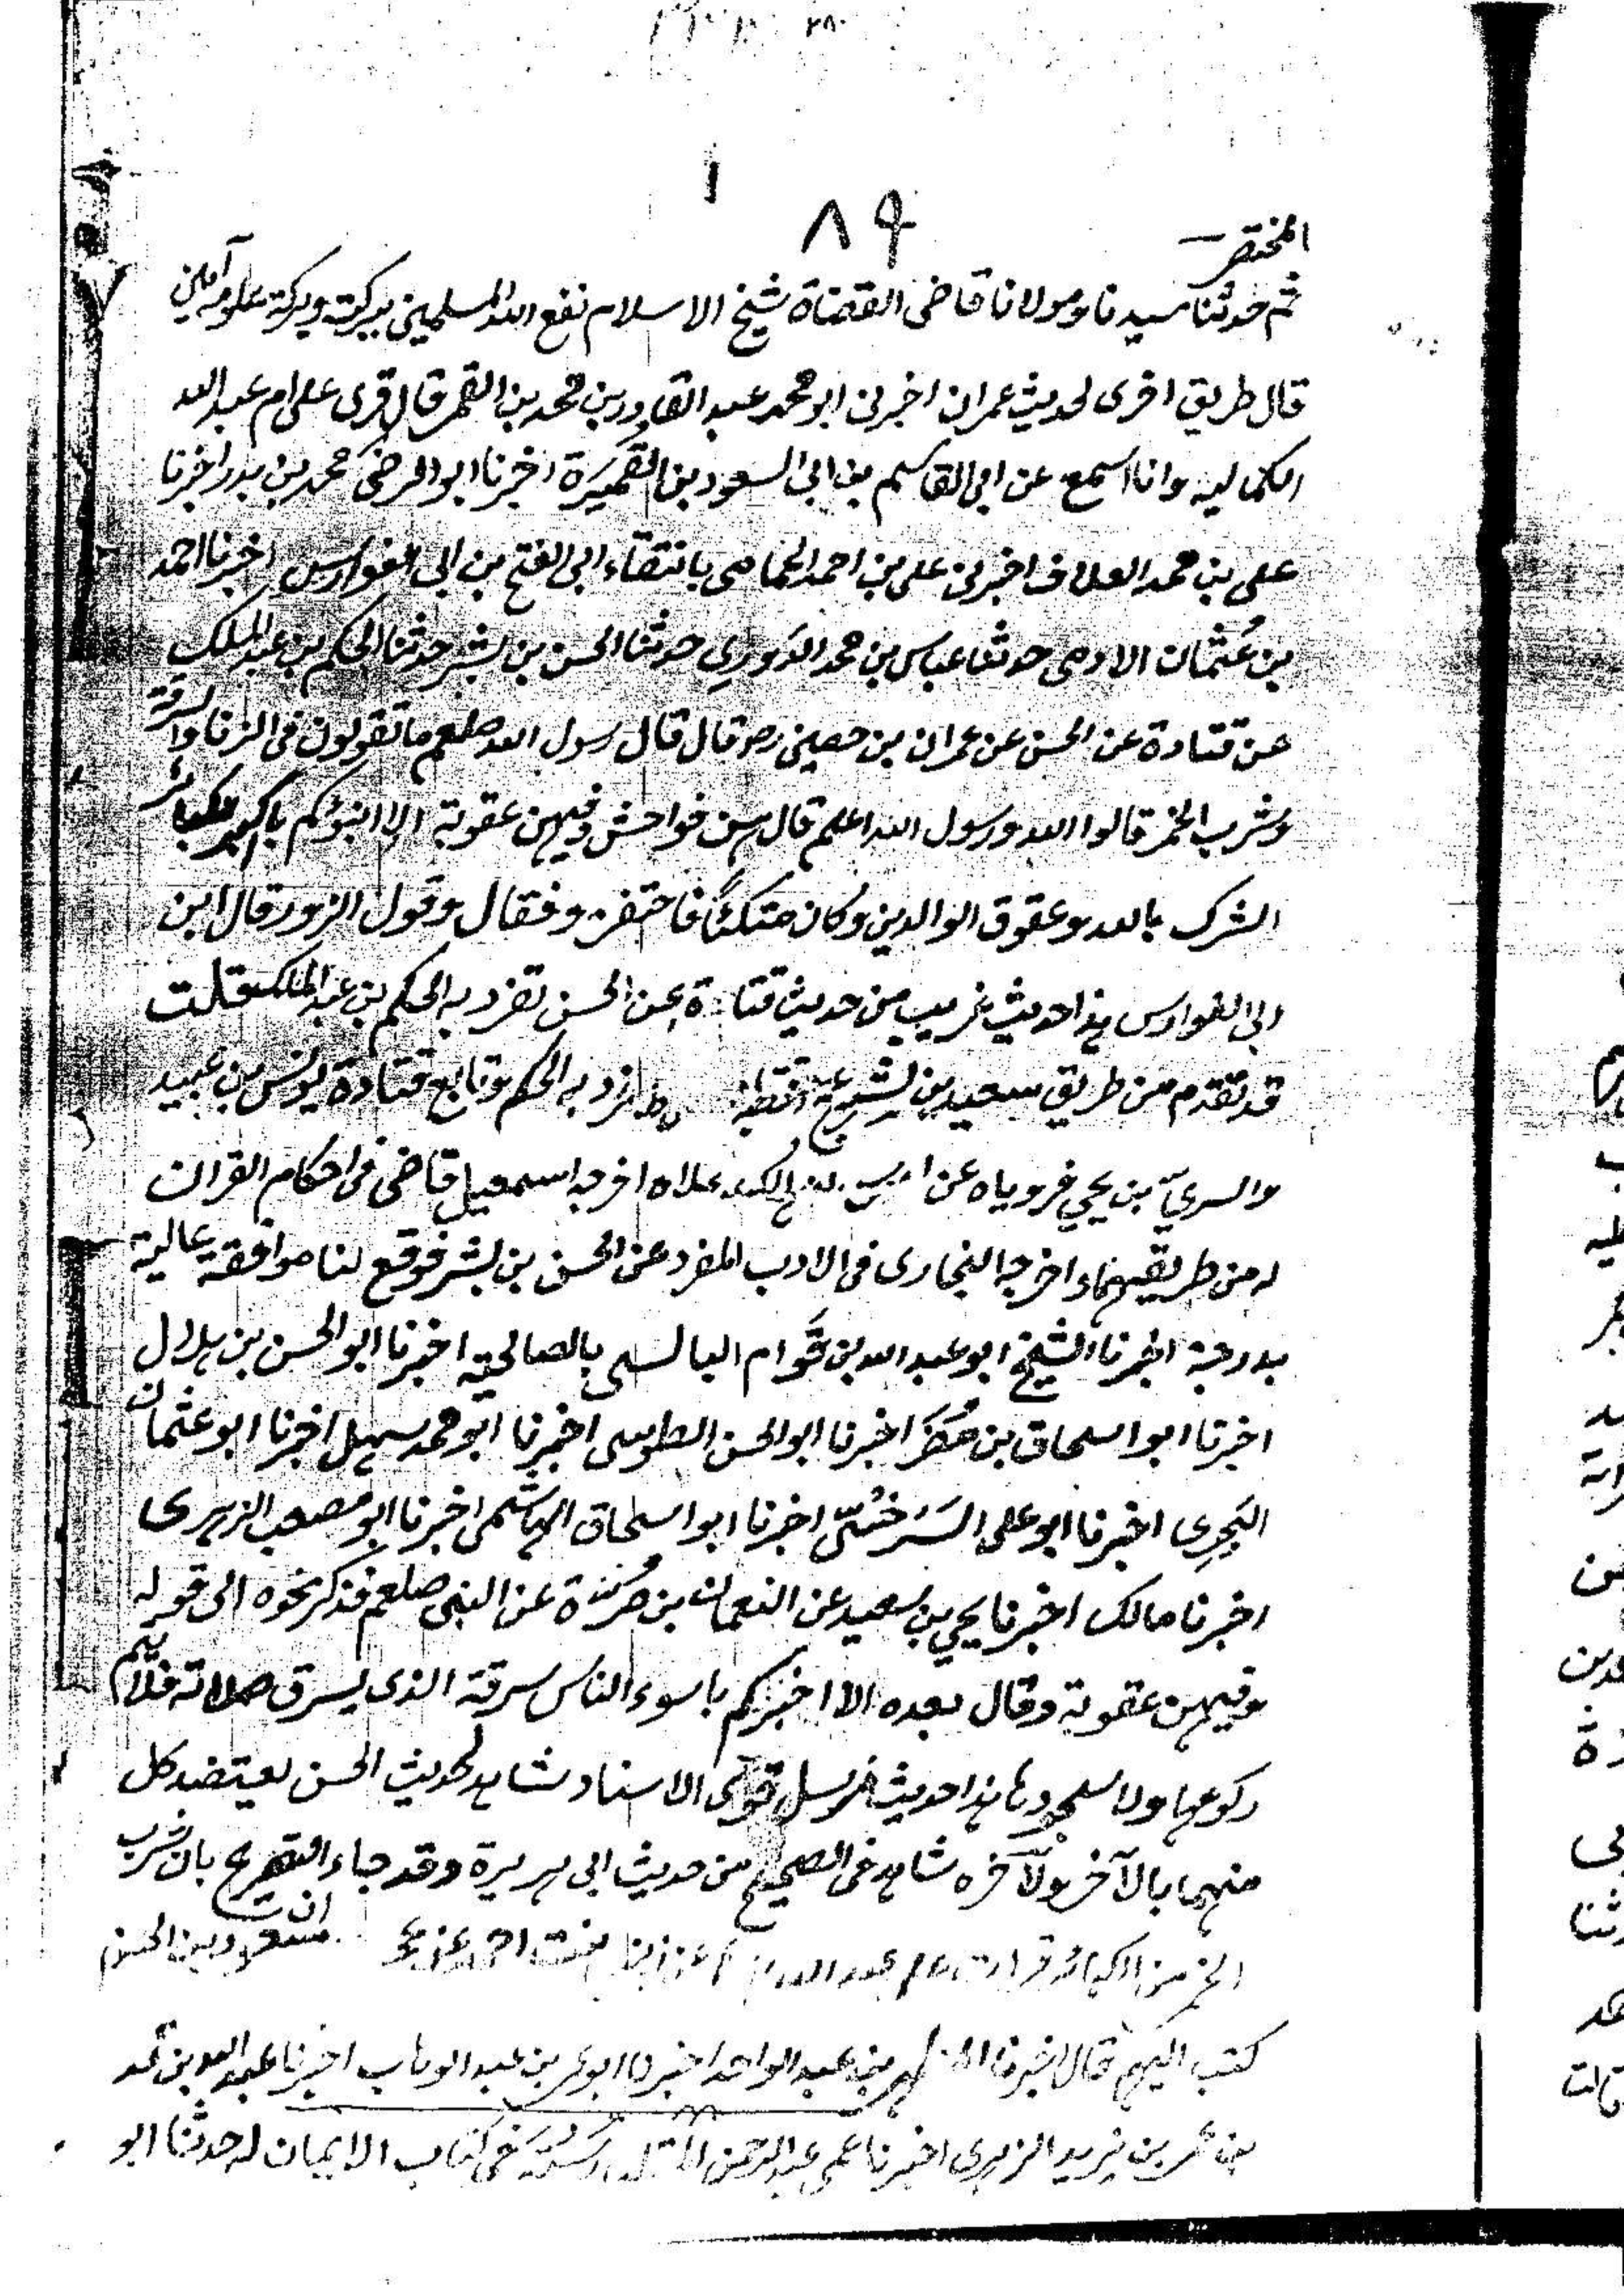 ١
٨٤
المختصر
ثم حدثنا سيدنا ومولانا قاضى القضاة شيخ الاسلام نفع الله المسلمين ببركته وبركة علومه آمين
قال طريق اخرى لحديث عمران اخبرنى ابو محمد عبد القادر بن محمد بن القمر قال قرى على ام عبد الله
الكماليه وانا اسمع عن ابى القاسم بن ابى السعود بن القُمَيرَة اخبرنا ابو الرضى محمد بن بدر اخبرنا
على بن محمد العلاف اخبرنى على بن احمد الحمامى بانتقاء ابى الفتح بن ابى الفوارس اخبرنا احمد
بن عُثمان الادمى حدثنا عباس بن محمد الدَوري حدثنا الحسن بن بشر حدثنا الحكم بن عبد الملك
عن قتادة عن الحسن عن عمران بن حصين رضـ قال قال رسول الله صلعم ما تقولون فى الزنا والسرقة
وشرب الخمر قالوا الله ورسول الله اعلم قال هن فواحش وفيهن عقوبة الا انبؤكم باكبر الكبائر
الشرك بالله وعقوق الوالدين وكان متكئاً فاحتفز وفقال وقول الزور قال ابن
ابى الفوارس هذا حديث غريب من حديث قتادة عن الحسن تفرد به الحكم بن عبد الملك قلت
قد تقدم من طريق سعيد بن بشير عن به الحكم وتابع قتادة يونس بن عبيد
والسريّ بن يحيي فروياه عن اخرجه اسمعيل قاضى فى احكام القران
له من طريقيهما واخرجه البخارى فى الادب المفرد عن الحسن بن بشر فوقع لنا موافقة عالية
بدرجة اخبرنا الشيخ ابو عبد الله بن قَوام البالسى بالصالحية اخبرنا ابو الحسن بن هلال
اخبرنا ابو اسحاق بن مُضَر اخبرنا ابو الحسن الطوسى اخبرنا ابو محمد سهل اخبرنا ابو عثمان
البَحِرى اخبرنا ابو على السَرخسّى اخبرنا ابو اسحاق الهاشمى اخبرنا ابو مصعب الزهرى
اخبرنا مالك اخبرنا يحيي بن سعيد عن النعمان بن مُرّة عن النبى صلعم فذكر نحوه الى قوله
وفيهن عقوبة وقال بعده الا اخبركم باسوء الناس سرقة الذى يسرق صلاته فلا يتم
ركوعها ولا سجودها هذا حديث مرسل قوى الاسناد شاهد لحديث الحسن يعتضد كل
منهما بالآخر ولآخره شاهد فى الصحيح من حديث ابى هريرة وقد جاء التصريح بان شرب
الخمر من الكبائر قرات على عبد الله عن زينب بنت احمد عن مسعود بن الحسن
كتب اليهم قال اخبرنا بن عبد الواحد اخبرنا ابو عمر بن عبد الوهاب اخبرنا عبد الله بن محمد
بن عمر بن يزيد الزهرى اخبرنا عمى عبد الرحمن رُسْتَه فى كتاب الايمان له حدثنا ابو